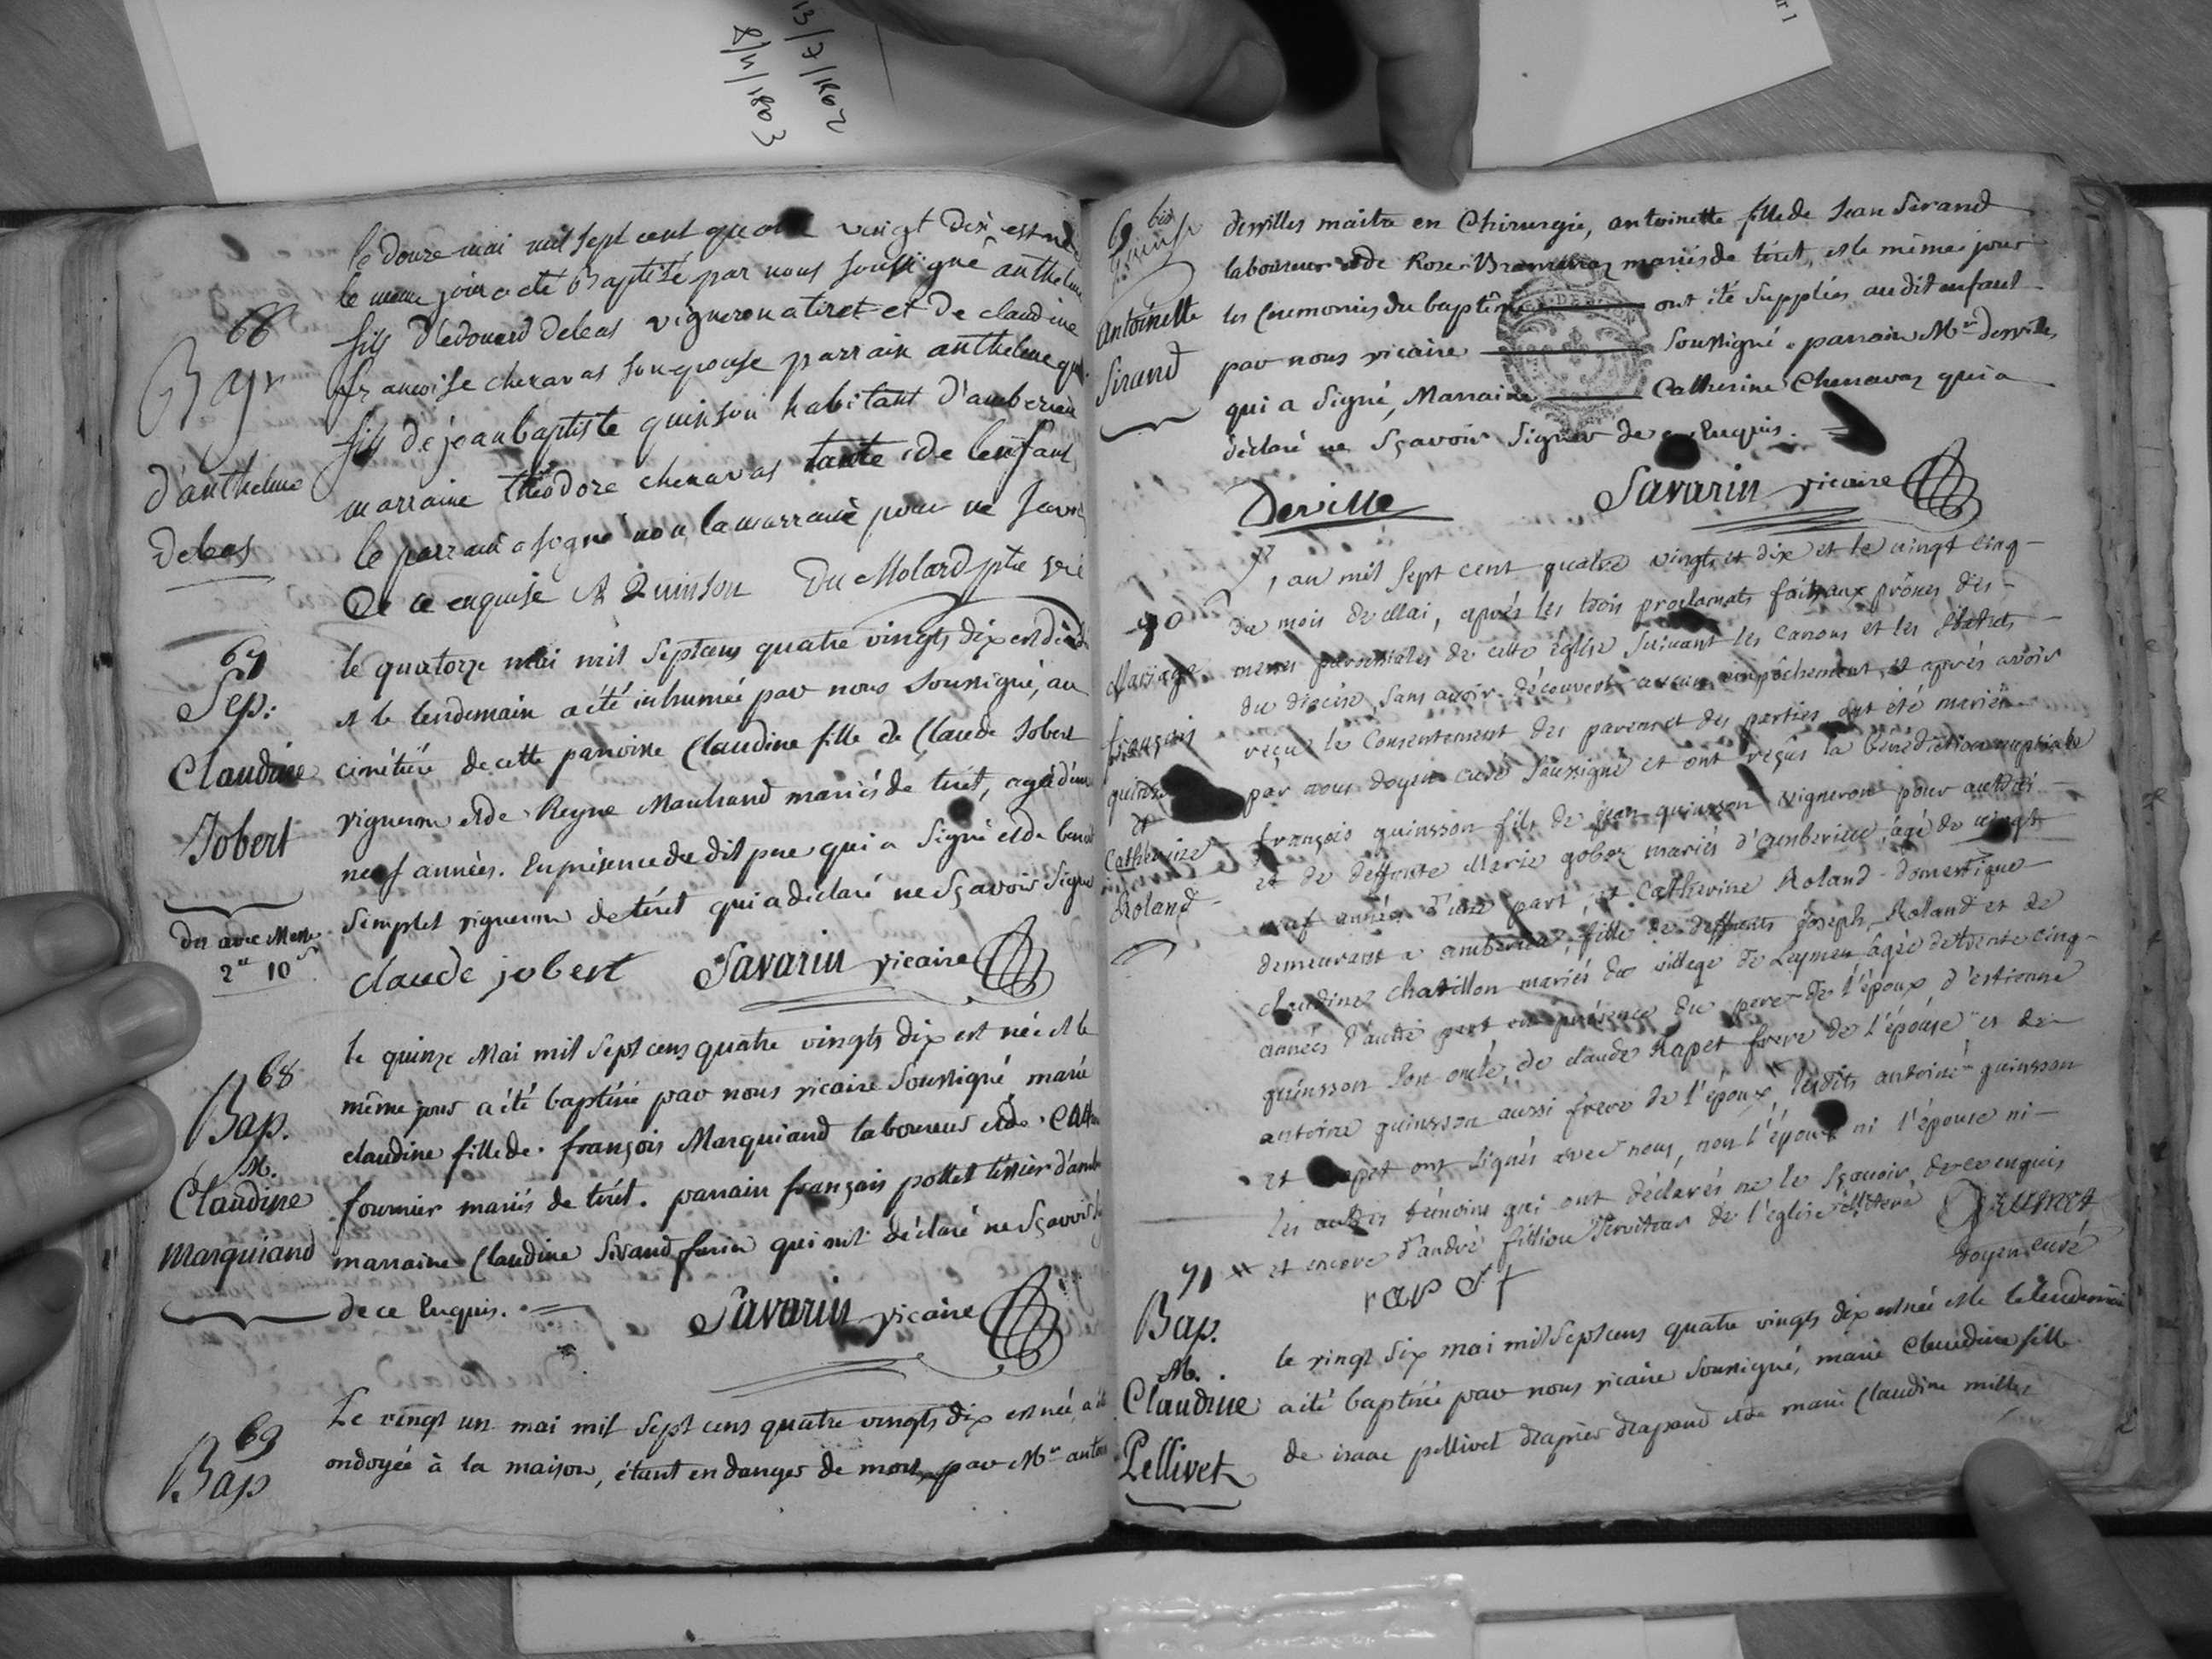 13/7/1802
8/4/1803
ir 1
le douze mai mil sept cent quatre vingt dix, est né
le meme jour a eté Baptisé par nous soussigné anthelme
68
Bap
d'anthelme
Deleas
fils d'édouard deleas vigneron a tiret et de claudine
françoise chenavas son epouse parrain anthelme qui.
fils de jean baptiste quinson habitant d'amberieu
marraine théodore chenavas tante de lenfant
le parrain a signé non la marraine pour ne savoir
De ce enquise A Quinson Du Molard ptre vre
67
Sep:
Claudine
Jobert
du avec Messe
2" 10 s
le quatorze mai mil septcens quatre vingts dix est décédé
et le lendemain a été inhumée par nous soussigné, au
cimétiére de cette paroisse Claudine fille de Claude Jobert
vigneron et de Reyne Marchand mariés de tirét, agée d'en
neuf années. En présence du dit pere qui a signé et de benoit
Semplet vigneron de tirét qui a déclaré ne sçavoir signer
claude jobert Savarin vicaire
68
Bap.
M.
Claudine
Marquiand
le quinze Mai mil sept cens quatre vingts dix est née et le
même jour a été baptisée par nous vicaire soussigné marie
claudine fille de françois Marquiand laboureur et de Cath
fournier mariés de tirét. parrain français pollet tissier d'amb
marraine Claudine Sirand qui ont déclaré ne sçavoir
de ce Enquis. Savarin vicaire
69
Bap
Le vingt un mai mil sept cens quatre vingts dix est née, a été
ondoyée à la maison, étant en danger de mort par Mr antoi
69 bis
Antoinette
Sirand
desvilles maitre en Chirurgie, antoinette fille de Jean Sirand
laboureur et de Rose mariés de tirét, et le même jour
les Ceremonies du baptême ont été supplées audit enfant
par nous vicaire soussigné. parrain Mr desvilles
qui a signé, Marraine Catherine Chenavaz qui a
déclaré ne sçavoir signer de ce Enquis.
Deville Savarin vicaire
70
Mariage
françois
quinson
et
Catherine
Roland
L'an mil sept cent quatre vingts et dix et le vingt cinq
du mois de Mai, après les trois proclamats faits aux prônes des
messes paroissiales de cette église suivant les canons et les statuts
du diocèse sans avoir découvert aucun empêchement, et après avoir
reçu le consentement des parens et des parties ont été mariés
par nous doyen curé soussigné et ont reçus la bénédiction nuptiale
françois quinsson fils de jean quinsson vigneron pour autrui
et de deffunte Marie gobez mariés d'amberieu, âgé de vingt
neuf années d'une part, et Catherine Roland domestique
demeurant a amberieu, fille de deffunts Joseph Roland et de
claudine Chatillon mariés du village de Leyment âgée de trente cinq
années d'autre part en présence du pere de l'époux, d'estienne
quinsson son oncle, de claude Rapet frere de l'épouse et de
antoine quinsson aussi frere de l'époux, lesdits antoine quinsson
et Rapet ont signés avec nous, non l'époux ni l'épouse ni
les autres témoins qui ont déclarés ne le sçavoir de ce enquis
et encore d'andré fillion serviteur de l'église illiteré
Brunet
doyen curé
rapet
71
Bap.
M.
Claudine
Pellivet
le vingt six mai mil sept cens quatre vingts dix est née et le lendemain
a été baptisée par nous vicaire soussigné, marie Claudine fille
de isaac pellivet drapier drapand et de marie Claudine millet